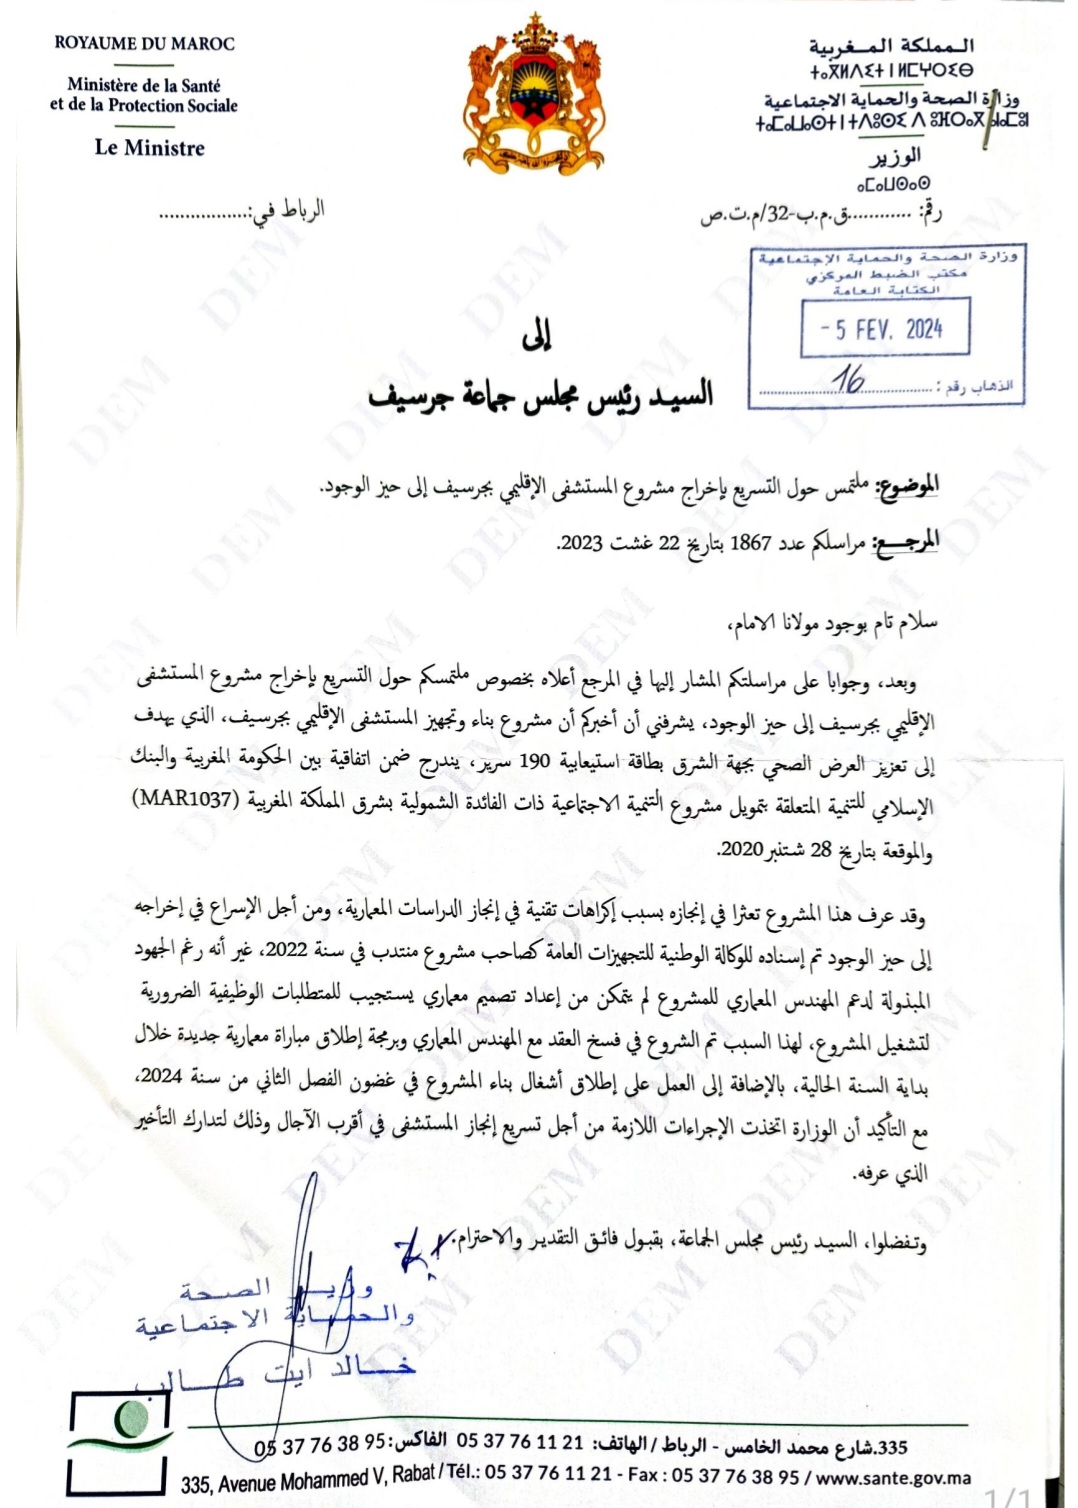 ROYAUME DU MAROC
Ministère de la Santé
et de la Protection Sociale
Le Ministre
المملكة المغربية
ⵜⴰⴳⵍⴷⵉⵜ ⵏ ⵍⵎⵖⵔⵉⴱ
وزارة الصحة والحماية الاجتماعية
الوزير
ⴰⵎⴰⵡⵙⴰⵙ
رقم: ............ق.م.ب-32/م.ت.ص
الرباط في:.................
وزارة الصحة والحماية الإجتماعية
مكتب الضبط المركزي
الكتابة العامة
- 5 FEV. 2024
الذهاب رقم : 16
إلى
السيد رئيس مجلس جماعة جرسيف
الموضوع: ملتمس حول التسريع بإخراج مشروع المستشفى الإقليمي بجرسيف إلى حيز الوجود.
المرجع: مراسلكم عدد 1867 بتاريخ 22 غشت 2023.
سلام تام بوجود مولانا الامام،
وبعد، وجوابا على مراسلتكم المشار إليها في المرجع أعلاه بخصوص ملتمسكم حول التسريع بإخراج مشروع المستشفى
الإقليمي بجرسيف إلى حيز الوجود، يشرفني أن أخبركم أن مشروع بناء وتجهيز المستشفى الإقليمي بجرسيف، الذي يهدف
إلى تعزيز العرض الصحي بجهة الشرق بطاقة استيعابية 190 سرير، يندرج ضمن اتفاقية بين الحكومة المغربية والبنك
الإسلامي للتنمية المتعلقة بتمويل مشروع التنمية الاجتماعية ذات الفائدة الشمولية بشرق المملكة المغربية (MAR1037)
والموقعة بتاريخ 28 شتنبر 2020.
وقد عرف هذا المشروع تعثرا في إنجازه بسبب إكراهات تقنية في إنجاز الدراسات المعمارية، ومن أجل الإسراع في إخراجه
إلى حيز الوجود تم إسناده للوكالة الوطنية للتجهيزات العامة كصاحب مشروع منتدب في سنة 2022، غير أنه رغم الجهود
المبذولة لدعم المهندس المعماري للمشروع لم يتمكن من إعداد تصميم معماري يستجيب للمتطلبات الوظيفية الضرورية
لتشغيل المشروع، لهذا السبب تم الشروع في فسخ العقد مع المهندس المعماري وبرمجة إطلاق مباراة معمارية جديدة خلال
بداية السنة الحالية، بالإضافة إلى العمل على إطلاق أشغال بناء المشروع في غضون الفصل الثاني من سنة 2024،
مع التأكيد أن الوزارة اتخذت الإجراءات اللازمة من أجل تسريع إنجاز المستشفى في أقرب الآجال وذلك لتدارك التأخير
الذي عرفه.
وتفضلوا، السيد رئيس مجلس الجماعة، بقبول فائق التقدير والاحترام.
وزير الصحة
والحماية الاجتماعية
خالد ايت طالب
335.شارع محمد الخامس - الرباط / الهاتف: 05 37 76 11 21 الفاكس: 05 37 76 38 95
335, Avenue Mohammed V, Rabat / Tél.: 05 37 76 11 21 - Fax : 05 37 76 38 95 / www.sante.gov.ma
1/1